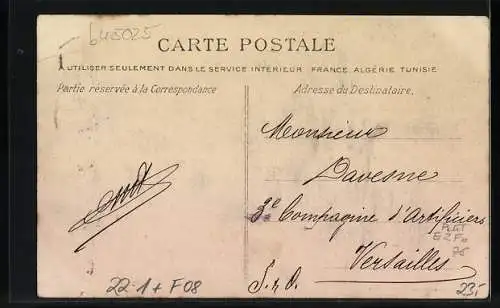 645025
CARTE POSTALE
A UTILISER SEULEMENT DANS LE SERVICE INTÉRIEUR FRANCE, ALGÉRIE TUNISIE
Partie réservée à la Correspondance
Adresse du Destinataire.
Monsieur
Davesne
3e Compagnie d'Artificiers
Petit
Versailles
S. et O.
22·1 + F08
235